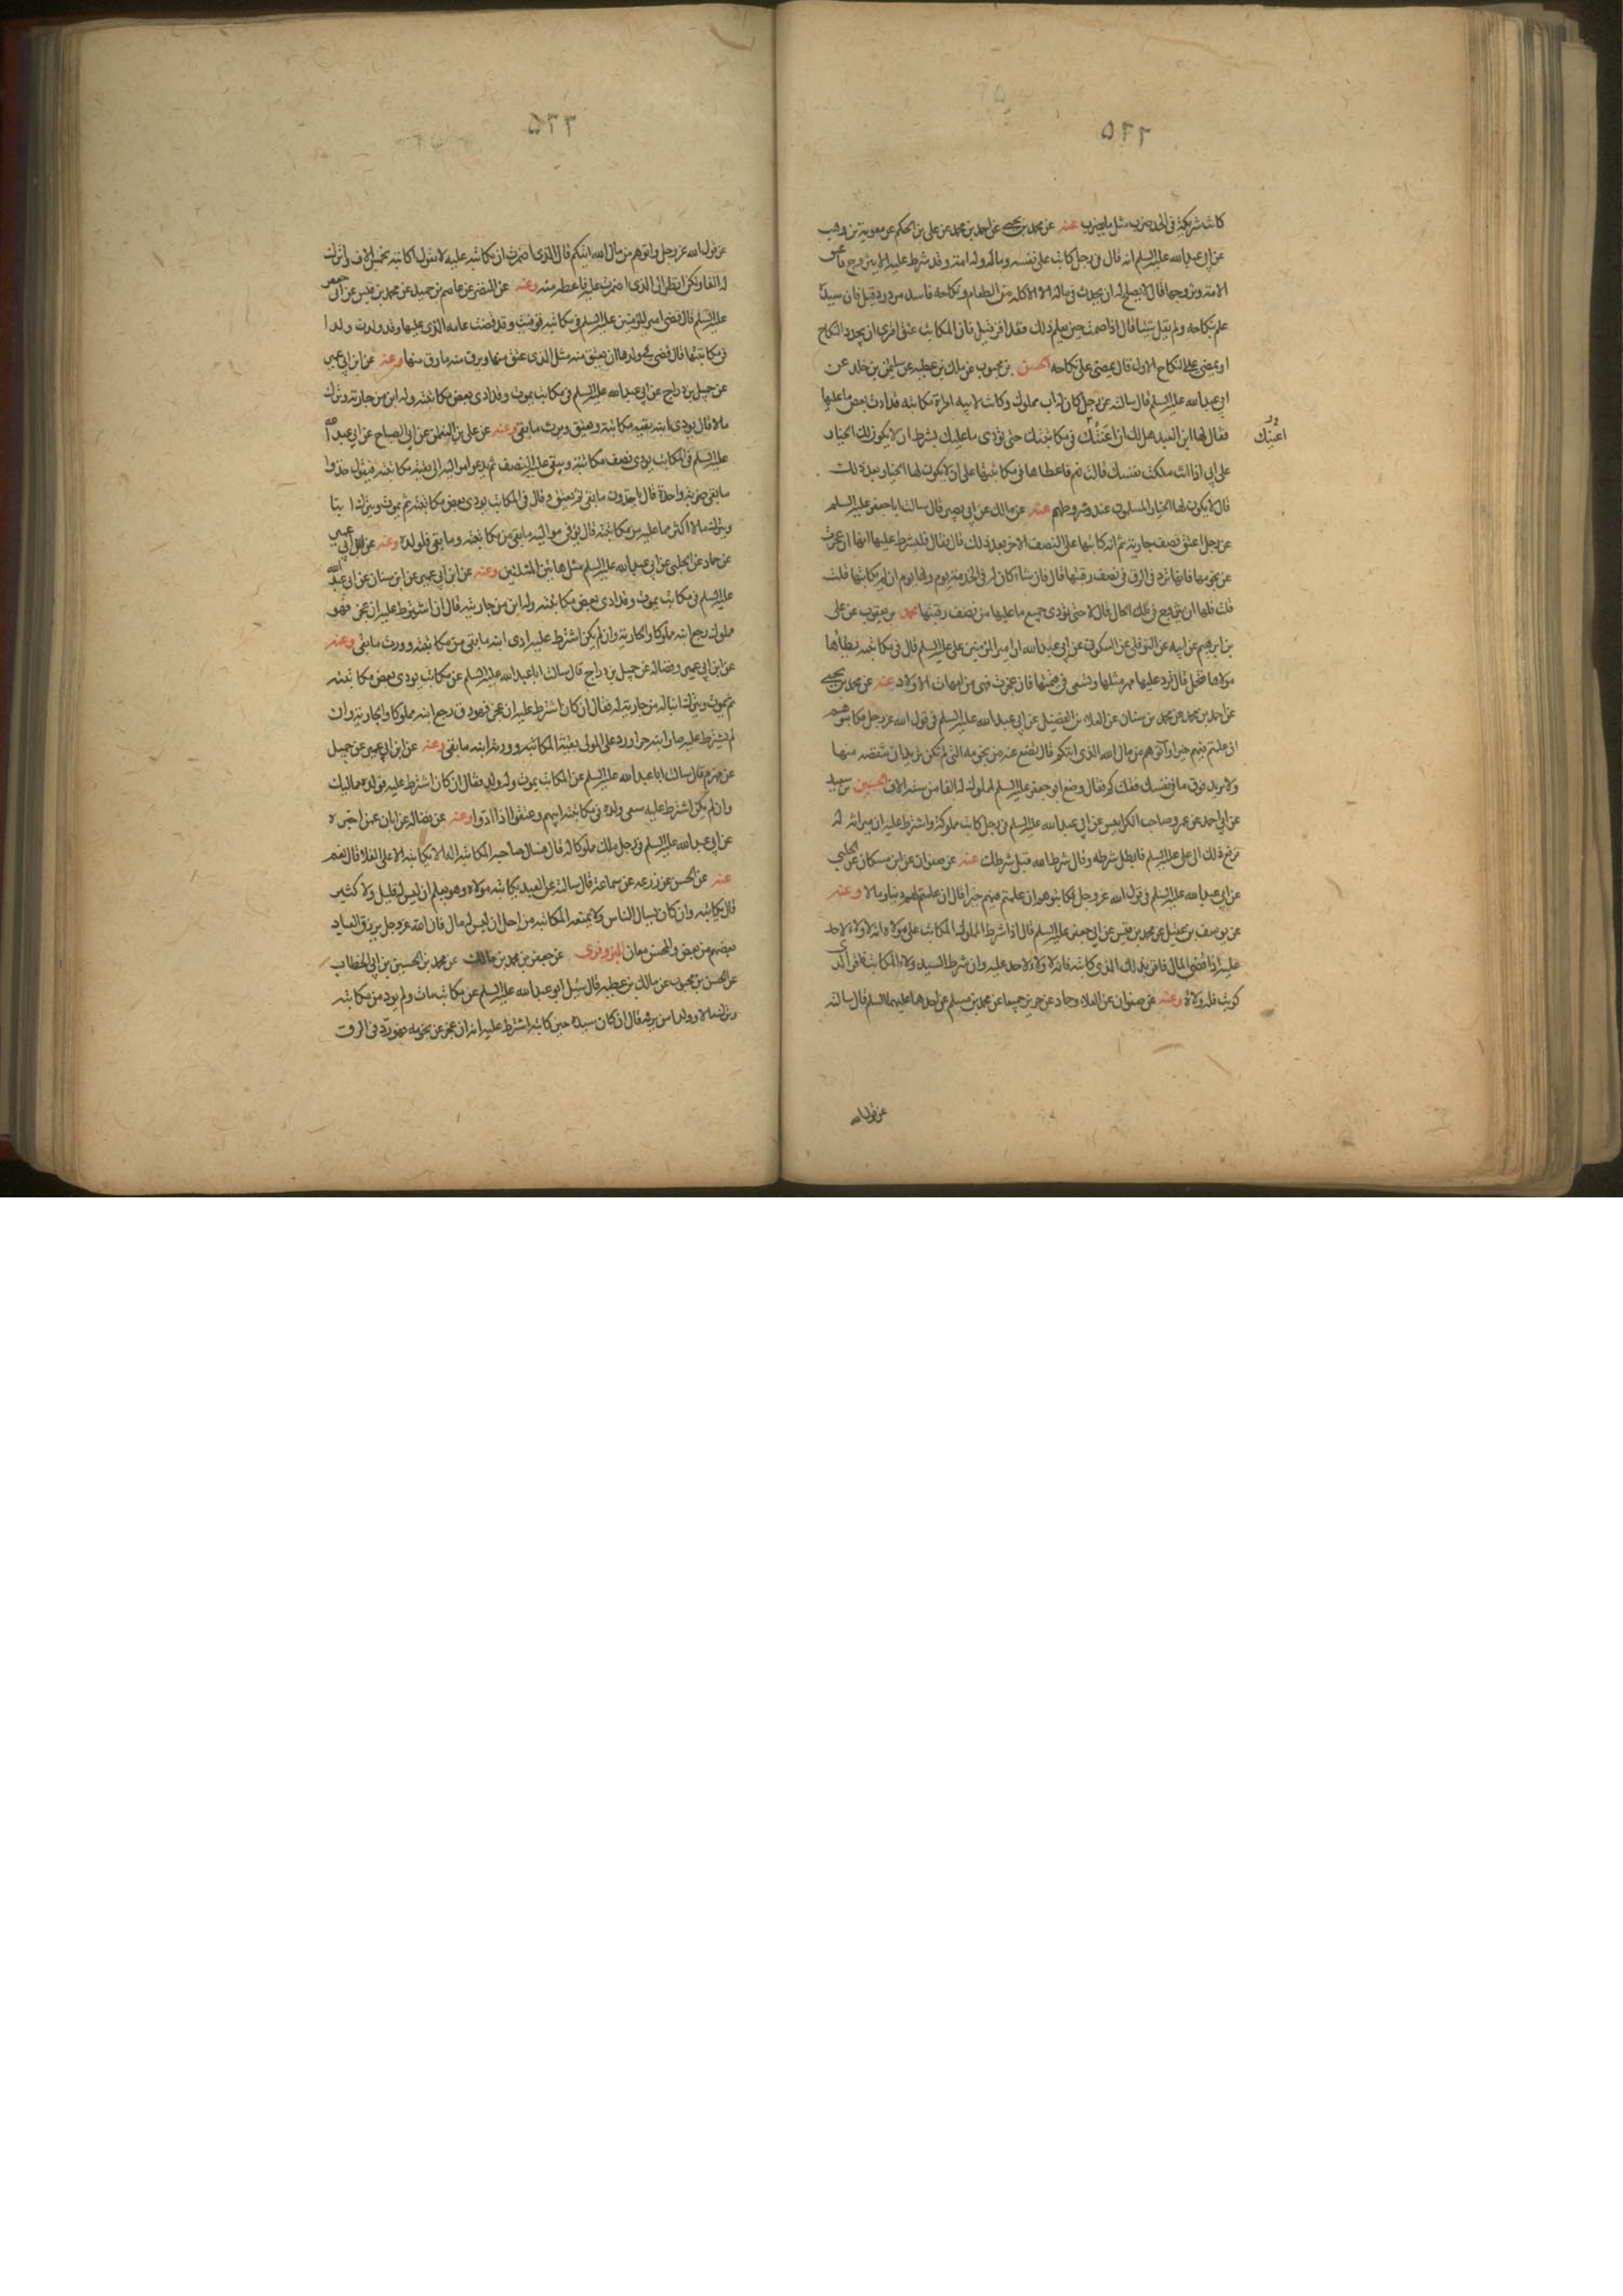 ٥٢٢
كانت شريكة في الحد ضرب مثل ما يضرب عنه عن محمد بن يحيى عن احمد بن محمد عن علي بن الحكم عن معوية بن وهب
عن ابي عبد الله عليه السلم انه قال في رجل كاتب على نفسه وماله وله امة وقد شرط عليه الا يتزوج فاعتق
الامة وتزوجها قال لا يصلح له ان يحدث في ماله الا الاكلة من الطعام ونكاحه فاسد مردود قيل فان سيده
علم بنكاحه ولم يقل شيئا قال اذا صمت حين يعلم ذلك فقد اقر قيل فان المكاتب عتق افترى ان يجدد النكاح
او يمضي على النكاح الاول قال يمضي على نكاحه الحسن بن محبوب عن ملك بن عطيه عن سليمن بن خلد عن
ابي عبد الله عليه السلم قال سالته عن رجل كان له اب مملوك وكانت لابيه امراة مكاتبه قد ادت بعض ما عليها
فقال لها ابن العبد هل لك ان اعينك في مكاتبتك حتى تؤدي ما عليك بشرط ان لا يكون لك الخيار
اعينك
على ابي اذا انت ملكت نفسك قالت نعم فاعطاها في مكاتبتها على ان لا يكون لها الخيار بعد ذلك
قال لا يكون لها الخيار المسلمون عند شروطهم عنه عن مالك عن ابي بصير قال سالت ابا جعفر عليه السلم
عن رجل اعتق نصف جاريته ثم انه كاتبها على النصف الاخر بعد ذلك قال فقال فليشرط عليها انها ان عجزت
عن نجومها فانها ترد في الرق في نصف رقبتها قال فان شاء كان له في الخدمة يوم ولها يوم ان لم يكاتبها قلت
قلت فلها ان تتزوج في تلك الحال قال لا حتى تؤدي جميع ما عليها من نصف رقبتها محمد بن يعقوب عن علي
بن ابرهيم عن ابيه عن النوفلي عن السكوني عن ابي عبد الله ان امير المؤمنين علي عليه السلم قال في مكاتبه يطأها
مولاها فتحبل قال ترد عليها مهر مثلها وتسعى في قيمتها فان عجزت فهي من امهات الاولاد عنه عن محمد بن يحيى
عن احمد بن محمد عن محمد بن سنان عن العلاء بن الفضيل عن ابي عبد الله عليه السلم في قول الله عز وجل فكاتبوهم
ان علمتم فيهم خيرا وآتوهم من مال الله الذي اتيكم قال تضع عنه من نجومه التي لم تكن تريد ان تنقصه منها
ولا تريد فوق ما في نفسك فقلت كم فقال وضع ابو جعفر عليه السلم لمملوك له الفا من ستة الاف الحسين بن سعيد
عن ابي احمد عن عمرو صاحب الكرابيس عن ابي عبد الله عليه السلم في رجل كاتب مملوكه واشترط عليه ان ميراثه له
فرفع ذلك الى علي عليه السلم فابطل شرطه وقال شرط الله قبل شرطك عنه عن صفوان عن ابن مسكان عن الحلبي
عن ابي عبد الله عليه السلم في قول الله عز وجل فكاتبوهم ان علمتم فيهم خيرا قال ان علمتم لهم دينا ومالا وعنه
عن يوسف بن عقيل عن محمد بن قيس عن ابي جعفر عليه السلم قال اذا شرط المملوك المكاتب على مولاه انه لا ولاء لاحد
عليه اذا قضى المال فاقر بذلك الذي كاتبه فانه لا ولاء لاحد عليه وان شرط السيد ولاء المكاتب فاقر الذي
كوتب فله ولاؤه وعنه عن صفوان عن العلاء وحماد عن حريز جميعا عن محمد بن مسلم عن احدهما عليهما السلم قال سالته
عن قول الله
٥٢٣
عن قول الله عز وجل واتوهم من مال الله اتيكم قال الذي اضمرت ان تكاتبه عليه لا تقول اكاتبه بخمسة الاف واترك
له الفا ولكن انظر الى الذي اضمرت عليه فاعطه منه وعنه عن النضر عن عاصم بن حميد عن محمد بن قيس عن ابي جعفر
عليه السلم قال قضى امير المؤمنين عليه السلم في مكاتبه توفيت وقد قضت عامة الذي عليها وقد ولدت ولدا
في مكاتبتها قال فقضى في ولدها ان يعتق منه مثل الذي عتق منها ويرق منه ما رق منها وعنه عن ابن ابي عمير
عن جميل بن دراج عن ابي عبد الله عليه السلم في مكاتب يموت وقد ادى بعض مكاتبته وله ابن من جاريته وترك
مالا قال يؤدي ابنه بقية مكاتبته ويعتق ويرث ما بقي وعنه عن علي بن النعمان عن ابي الصباح عن ابي عبد الله
عليه السلم في المكاتب يؤدي نصف مكاتبته ويبقى عليه النصف ثم يدعو مواليه الى بقية مكاتبته فيقول خذوا
ما بقي ضربة واحدة قال ياخذون ما بقي ثم يعتق وقال في المكاتب يؤدي بعض مكاتبته ثم يموت ويترك ابنا
ويترك مالا اكثر مما عليه من مكاتبته قال يوفي مواليه ما بقي من مكاتبته وما بقي فلولده وعنه عن ابن ابي عمير
عن حماد عن الحلبي عن ابي عبد الله عليه السلم مثل هاتين المسئلتين وعنه عن ابن ابي عمير عن ابن سنان عن ابي عبد الله
عليه السلم في مكاتب يموت وقد ادى بعض مكاتبته وله ابن من جاريته قال ان اشترط عليه ان عجز فهو
مملوك رجع ابنه مملوكا والجارية وان لم يكن اشترط عليه ادى ابنه ما بقي من مكاتبته وورث ما بقي وعنه
عن ابن ابي عمير وفضالة عن جميل بن دراج قال سالت ابا عبد الله عليه السلم عن مكاتب يؤدي بعض مكاتبته
ثم يموت ويترك ابنا له من جارية له فقال ان كان اشترط عليه ان عجز فهو رق رجع ابنه مملوكا والجارية وان
لم يشترط عليه صار ابنه حرا ورد على المولى بقية المكاتبه وورث ابنه ما بقي وعنه عن ابن ابي عمير عن جميل
عن مهزم قال سالت ابا عبد الله عليه السلم عن المكاتب يموت وله ولد فقال ان كان اشترط عليه فولده مماليك
وان لم يكن اشترط عليه سعى ولده في مكاتبة ابيهم وعتقوا اذا ادوا وعنه عن فضالة عن ابان عمن اخبره
عن ابي عبد الله عليه السلم في رجل ملك مملوكا له فسال صاحبه المكاتبة اله الا يكاتبه الا على الغلاء قال نعم
عنه عن الحسن عن زرعه عن سماعة قال سالته عن العبد يكاتبه مولاه وهو يعلم ان ليس له قليل ولا كثير
قال يكاتبه وان كان يسال الناس ولا يمنعه المكاتبه من اجل ان ليس له مال فان الله عز وجل يرزق العباد
بعضهم من بعض والمحسن معان البزوفري عن جعفر بن محمد بن مالك عن محمد بن الحسين بن ابي الخطاب
عن الحسن بن محبوب عن مالك بن عطيه قال سئل ابو عبد الله عليه السلم عن مكاتب مات ولم يؤد من مكاتبته
وترك مالا وولدا من يرثه قال ان كان سيده حين كاتبه اشترط عليه انه ان عجز عن نجومه فهو رد في الرق